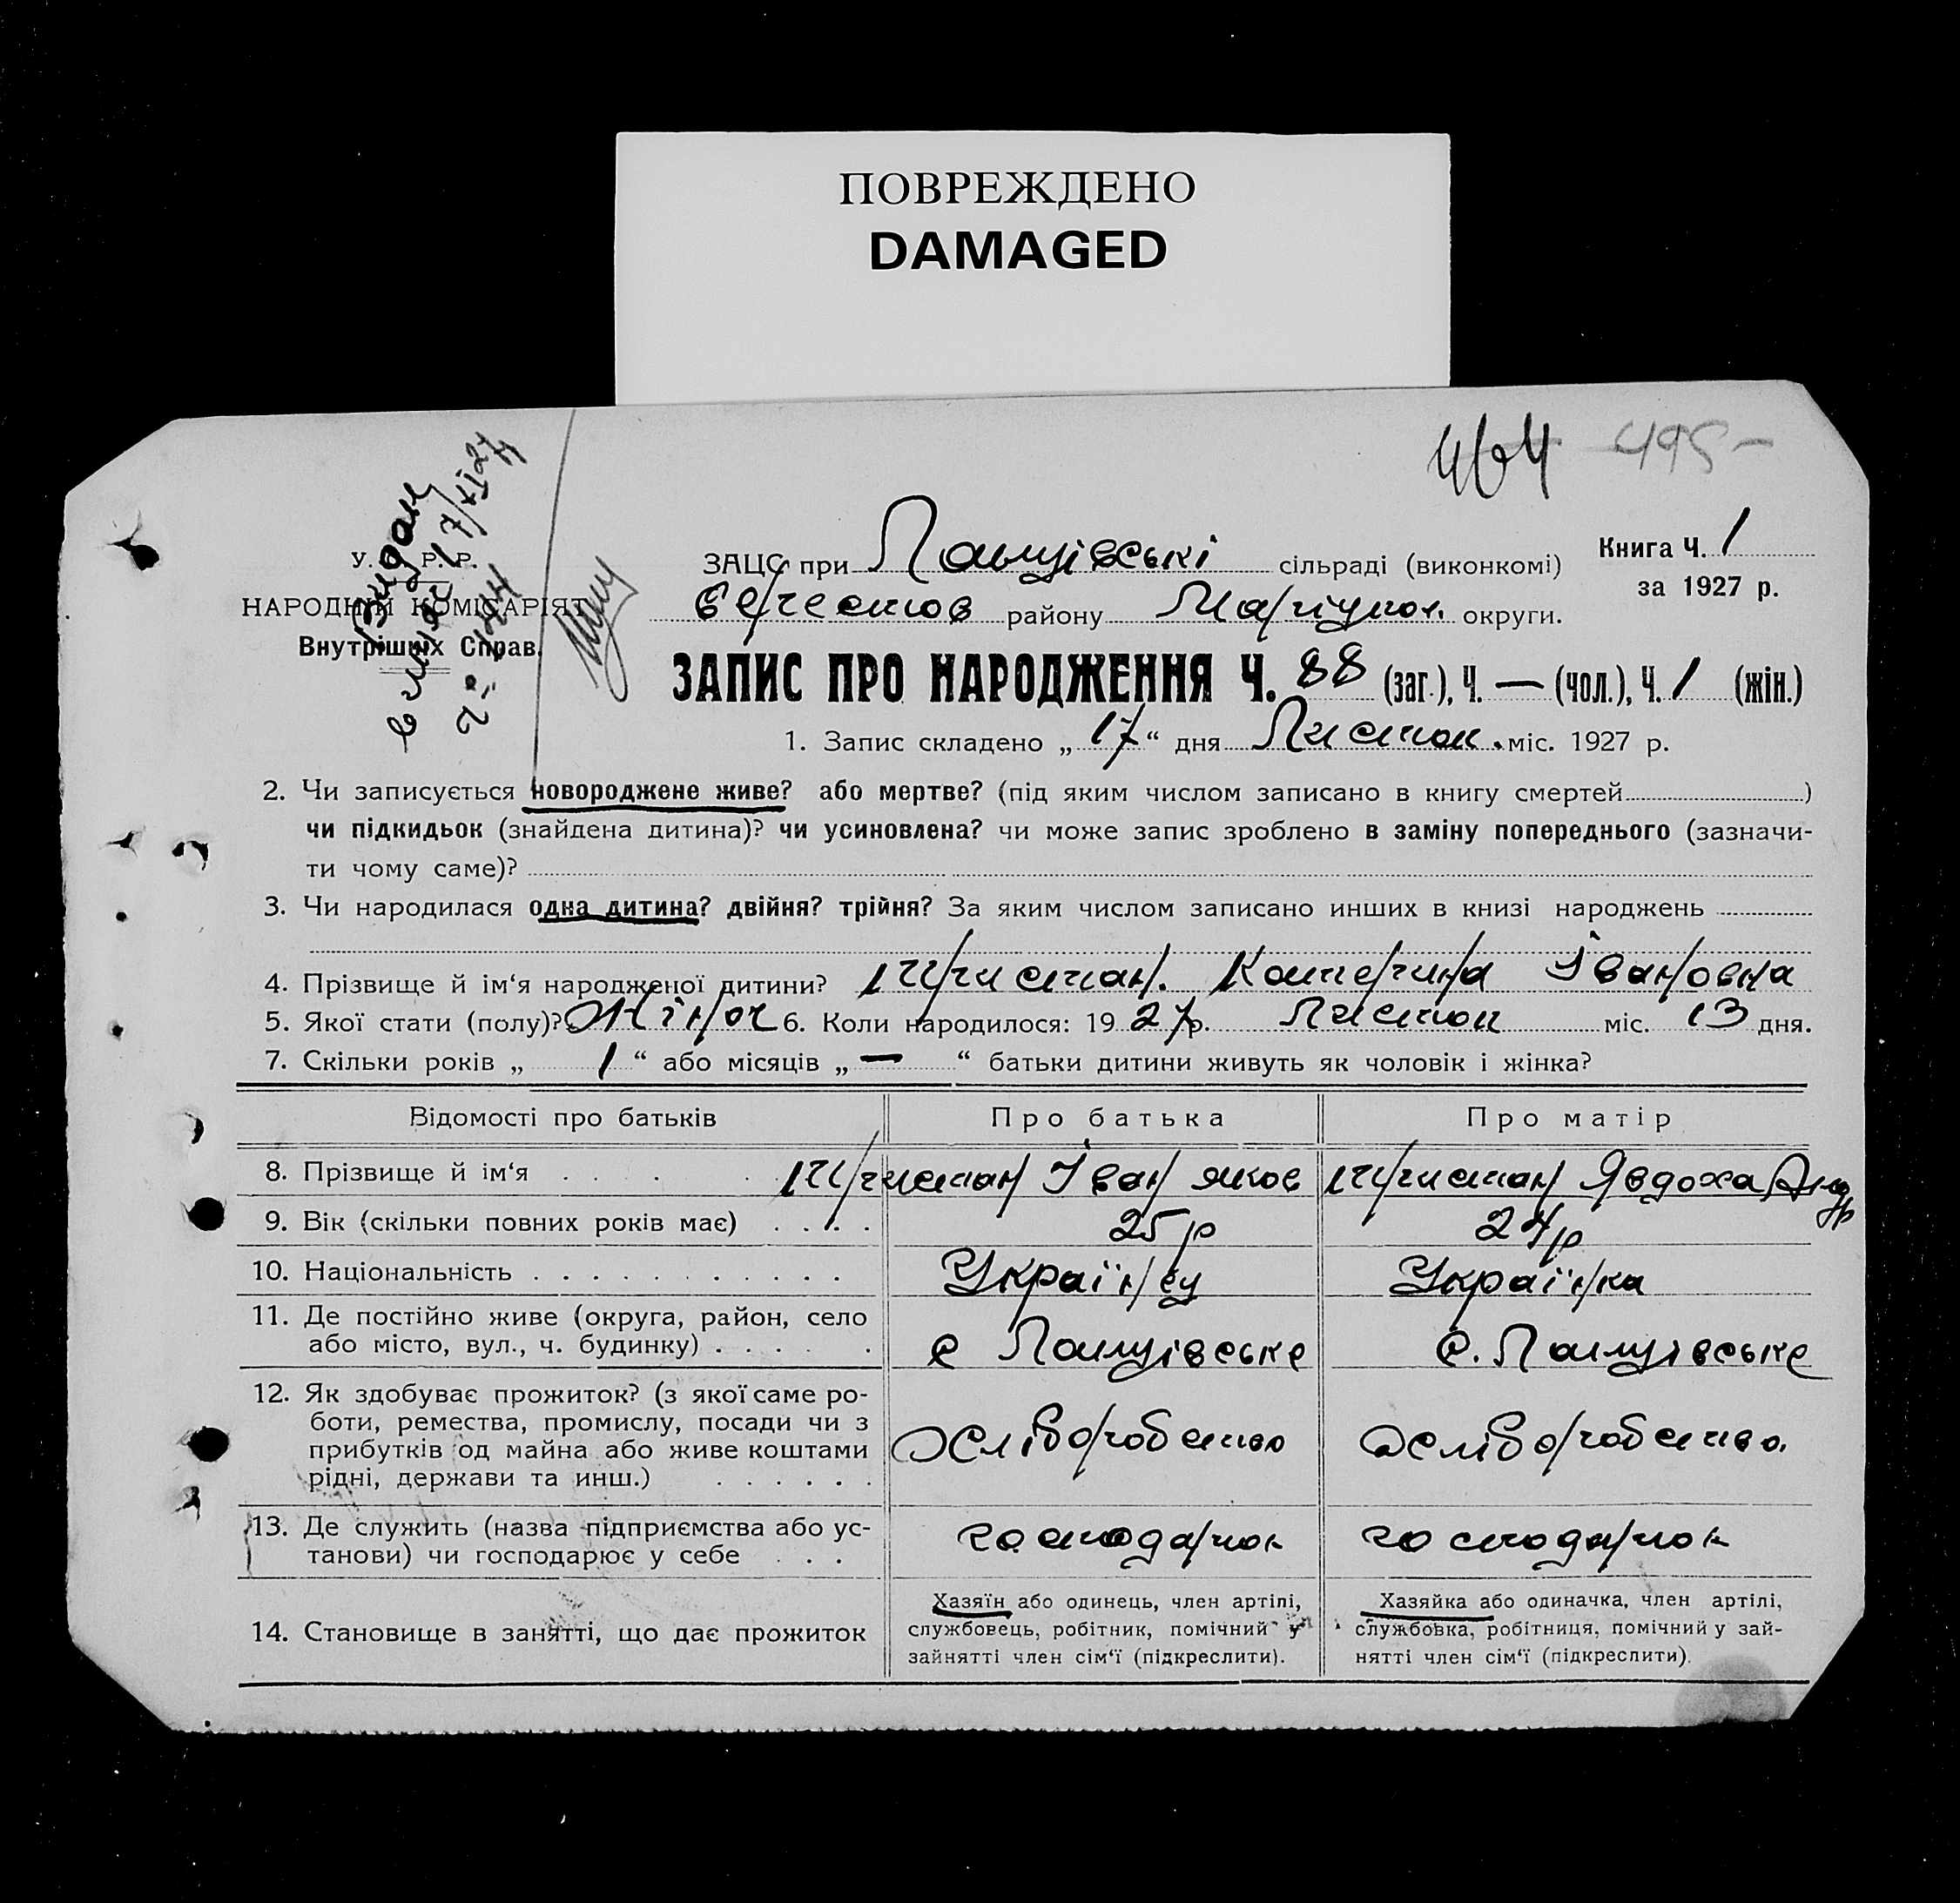 ПОВРЕЖДЕНО
DAMAGED
464 495-
У. С. Р. Р.
НАРОДНІЙ КОМІСАРІЯТ
Внутрішніх Справ.
Видан
ЗАЦС при сільраді (виконкомі)
Книга Ч. 1
за 1927 р.
району Маріупол. округи.
ЗАПИС ПРО НАРОДЖЕННЯ Ч. 88 (заг.), Ч. — (чол.), Ч. 1 (жін.)
1. Запис складено „ 17 “ дня Листоп. міс. 1927 р.
2. Чи записується новороджене живе? або мертве? (під яким числом записано в книгу смертей )
чи підкидьок (знайдена дитина)? чи усиновлена? чи може запис зроблено в заміну попереднього (зазначи-
ти чому саме)?
3. Чи народилася одна дитина? двійня? трійня? За яким числом записано инших в книзі народжень
4. Прізвище й ім‘я народженої дитини? Ширистан. Катерина Івановна
5. Якої стати (полу)? Жіноч 6. Коли народилося: 19 27 р. Листоп міс. 13 дня.
7. Скільки років „ 1 “ або місяців „ — “ батьки дитини живуть як чоловік і жінка?
Відомості про батьків Про батька Про матір
8. Прізвище й ім‘я Ширистан Іван Яков Ширистан Явдоха Андр
9. Вік (скільки повних років має) 25 р 24 р
10. Національність Українец Українка
11. Де постійно живе (округа, район, село
або місто, вул., ч. будинку) с с.
12. Як здобуває прожиток? (з якої саме ро-
боти, ремества, промислу, посади чи з
прибутків од майна або живе коштами
рідні, держави та инш.) Хліборобство Хліборобство.
13. Де служить (назва підприємства або ус-
танови) чи господарює у себе господарюк господарюк
14. Становище в занятті, що дає прожиток
Хазяїн або одинець, член артілі,
службовець, робітник, помічний у
зайнятті член сім‘ї (підкреслити).
Хазяйка або одиначка, член артілі,
службовка, робітниця, помічний у зай-
нятті член сім‘ї (підкреслити).